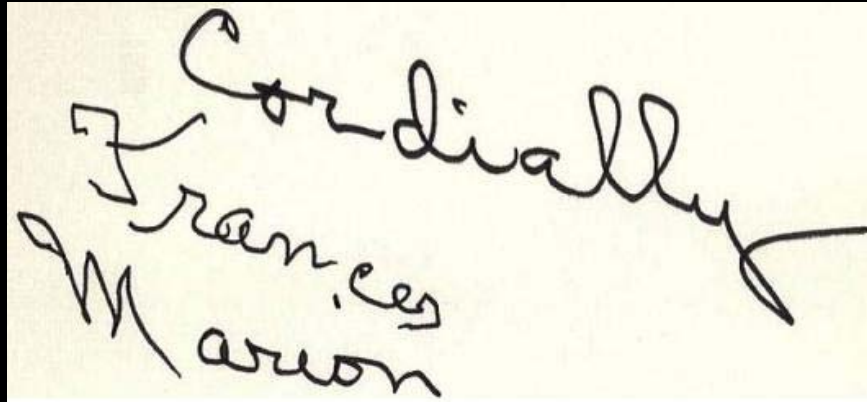 Cordially
Frances
Marion